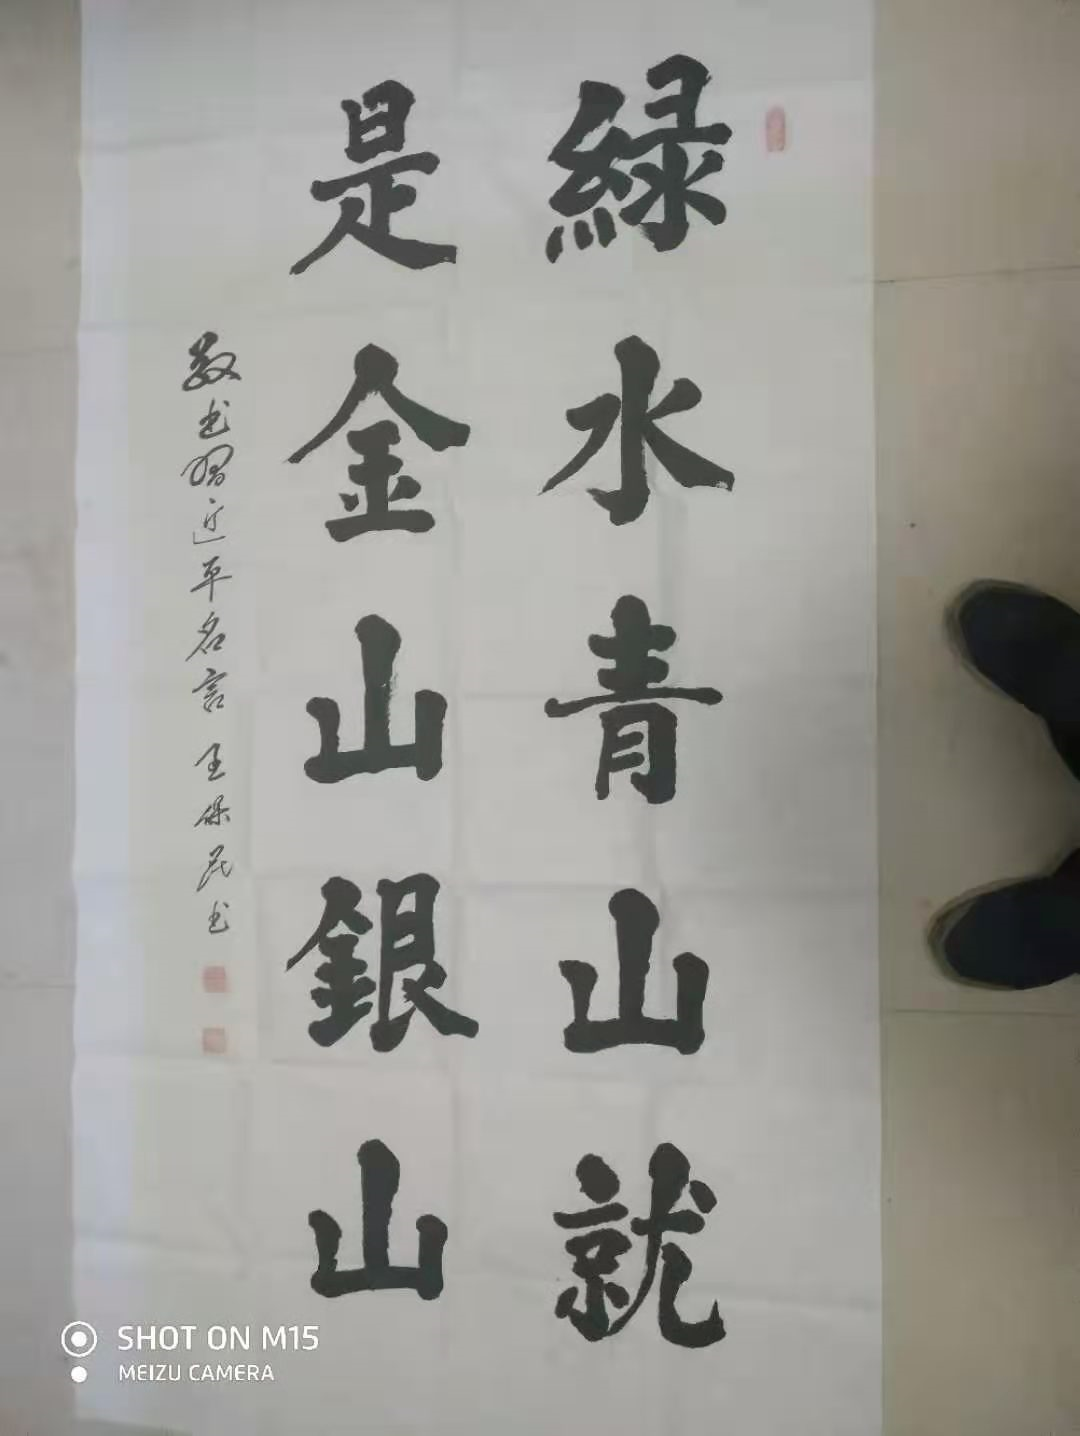 緑水青山就
是金山銀山
敬书習近平名言 王保民书
SHOT ON M15
MEIZU CAMERA